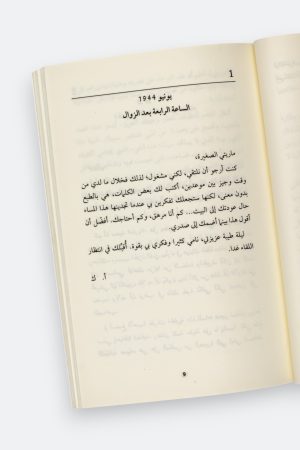 1
يونيو 1944
الساعة الرابعة بعد الزوال
ماريتي الصغيرة،
كنت أرجو أن نلتقي، لكني مشغول؛ لذلك فخلال ما لدي من
وقت وجيز بين موعدين، أكتب لك بعض الكلمات، هي بالطبع
بدون معنى، لكنها ستجعلك تفكرين بي عندما تجدينها هذا المساء
حال عودتك إلى البيت... كم أنا مرهق، وكم أحتاجك. أفضل أن
أقول هذا بينما أضمك إلى صدري.
ليلة طيبة عزيزتي، نامي كثيرا وفكري بي بقوة. أقبّلك في انتظار
اللقاء غدا.
أ. ك
9